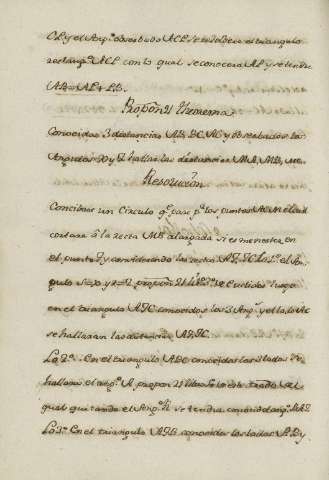 CE y el Ang.º observado ACE se resolvera el triangulo
rectang.º ACE con lo qual se conocera AE y se tendra
AB = AE + EB.
Propon. 21 Theorema
Conocidas 3 distancias AB, BC, AC y observados los
Angulos x y Z hallar las distancias MA, MB, MC.
Resolucion
Concibase un Circulo q.e pase p.r los puntos A M C el cual
cortara á la recta MB alargada si es menester en
el punto I y considerando las rectas AI, IC
en el triangulo AIC conocidos los 3 Ang.s y el lado AC
se hallaran las distancias AI, IC
Lo 2.º En el triangulo ABC conocidos los 3 lados se
hallara el ang.º A propon 21 libro
qual quitando el Ang.º se tendra conocido el ang.º
Lo 3.º En el triangulo AIB conocidos los lados AB y